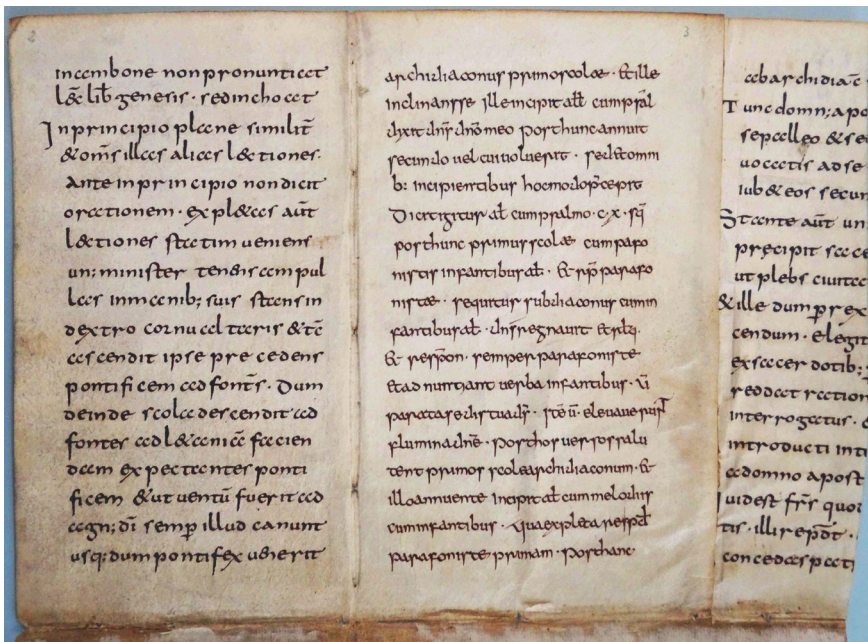 2
in ambone non pronuntiat
lec̄ lib̄ genesis · sed inchoat
In principio plane similit̄
& om̄s illas alias lectiones ·
Ante in principio non dicit
orationem · expl&as aūt
l&tiones statim veniens
un; minister tensis ampul
las in manib; suis stans in
dextro cornu altaris & tc̄
ascendit ipse precedens
pontificem ad fontes · Dum
deinde scola descendit ad
fontes ad l&aniā facien
dam expectantes ponti
ficem & ut ventū fuerit ad
agn; dī semp illud canunt
usq; dum pontifex venerit
3
archidiaconus primo scolae · & ille
inclinans se ille incipit all cum psal
dixit dn̄s dn̄o meo post hunc annuit
secundo vel cui voluerit · sed & omni
b; incipientibus hoc modo p̄cepit
Dicitigitur all cum psalmo · c · x · sq̄
post hunc primus scolae cum paro
nistis infantibus all · & rsp̄ parafo
nistae · sequitur subdiaconus cum in
fantibus all · dn̄s regnavit & rlq̄ ·
& respon · semper parafonistae
Et ad nuntiant verba infantibus · ū
parata sedis tua dn̄s · itē ū elevaver
flumina dn̄e · post hos versos salu
tent primos scolae archidiaconum · &
illo annuente incipit all cum melodiis
cum infantibus · Qua expleta resp̄d
parafoniste primam · Post hanc
ab archidiac̄
Tunc domn; apo
sepalleo & se
vocatis ad se
iub& eos secun
Stante aūt un
precipit
ut plebs civitat
& ille dum prex
andum · elegit
ex sacerdotib;
reddat rection
interrogatus ·
introducti int
a domno apost
vid est frs̄ quo
tis · illi rep̄dt ·
conceda specti